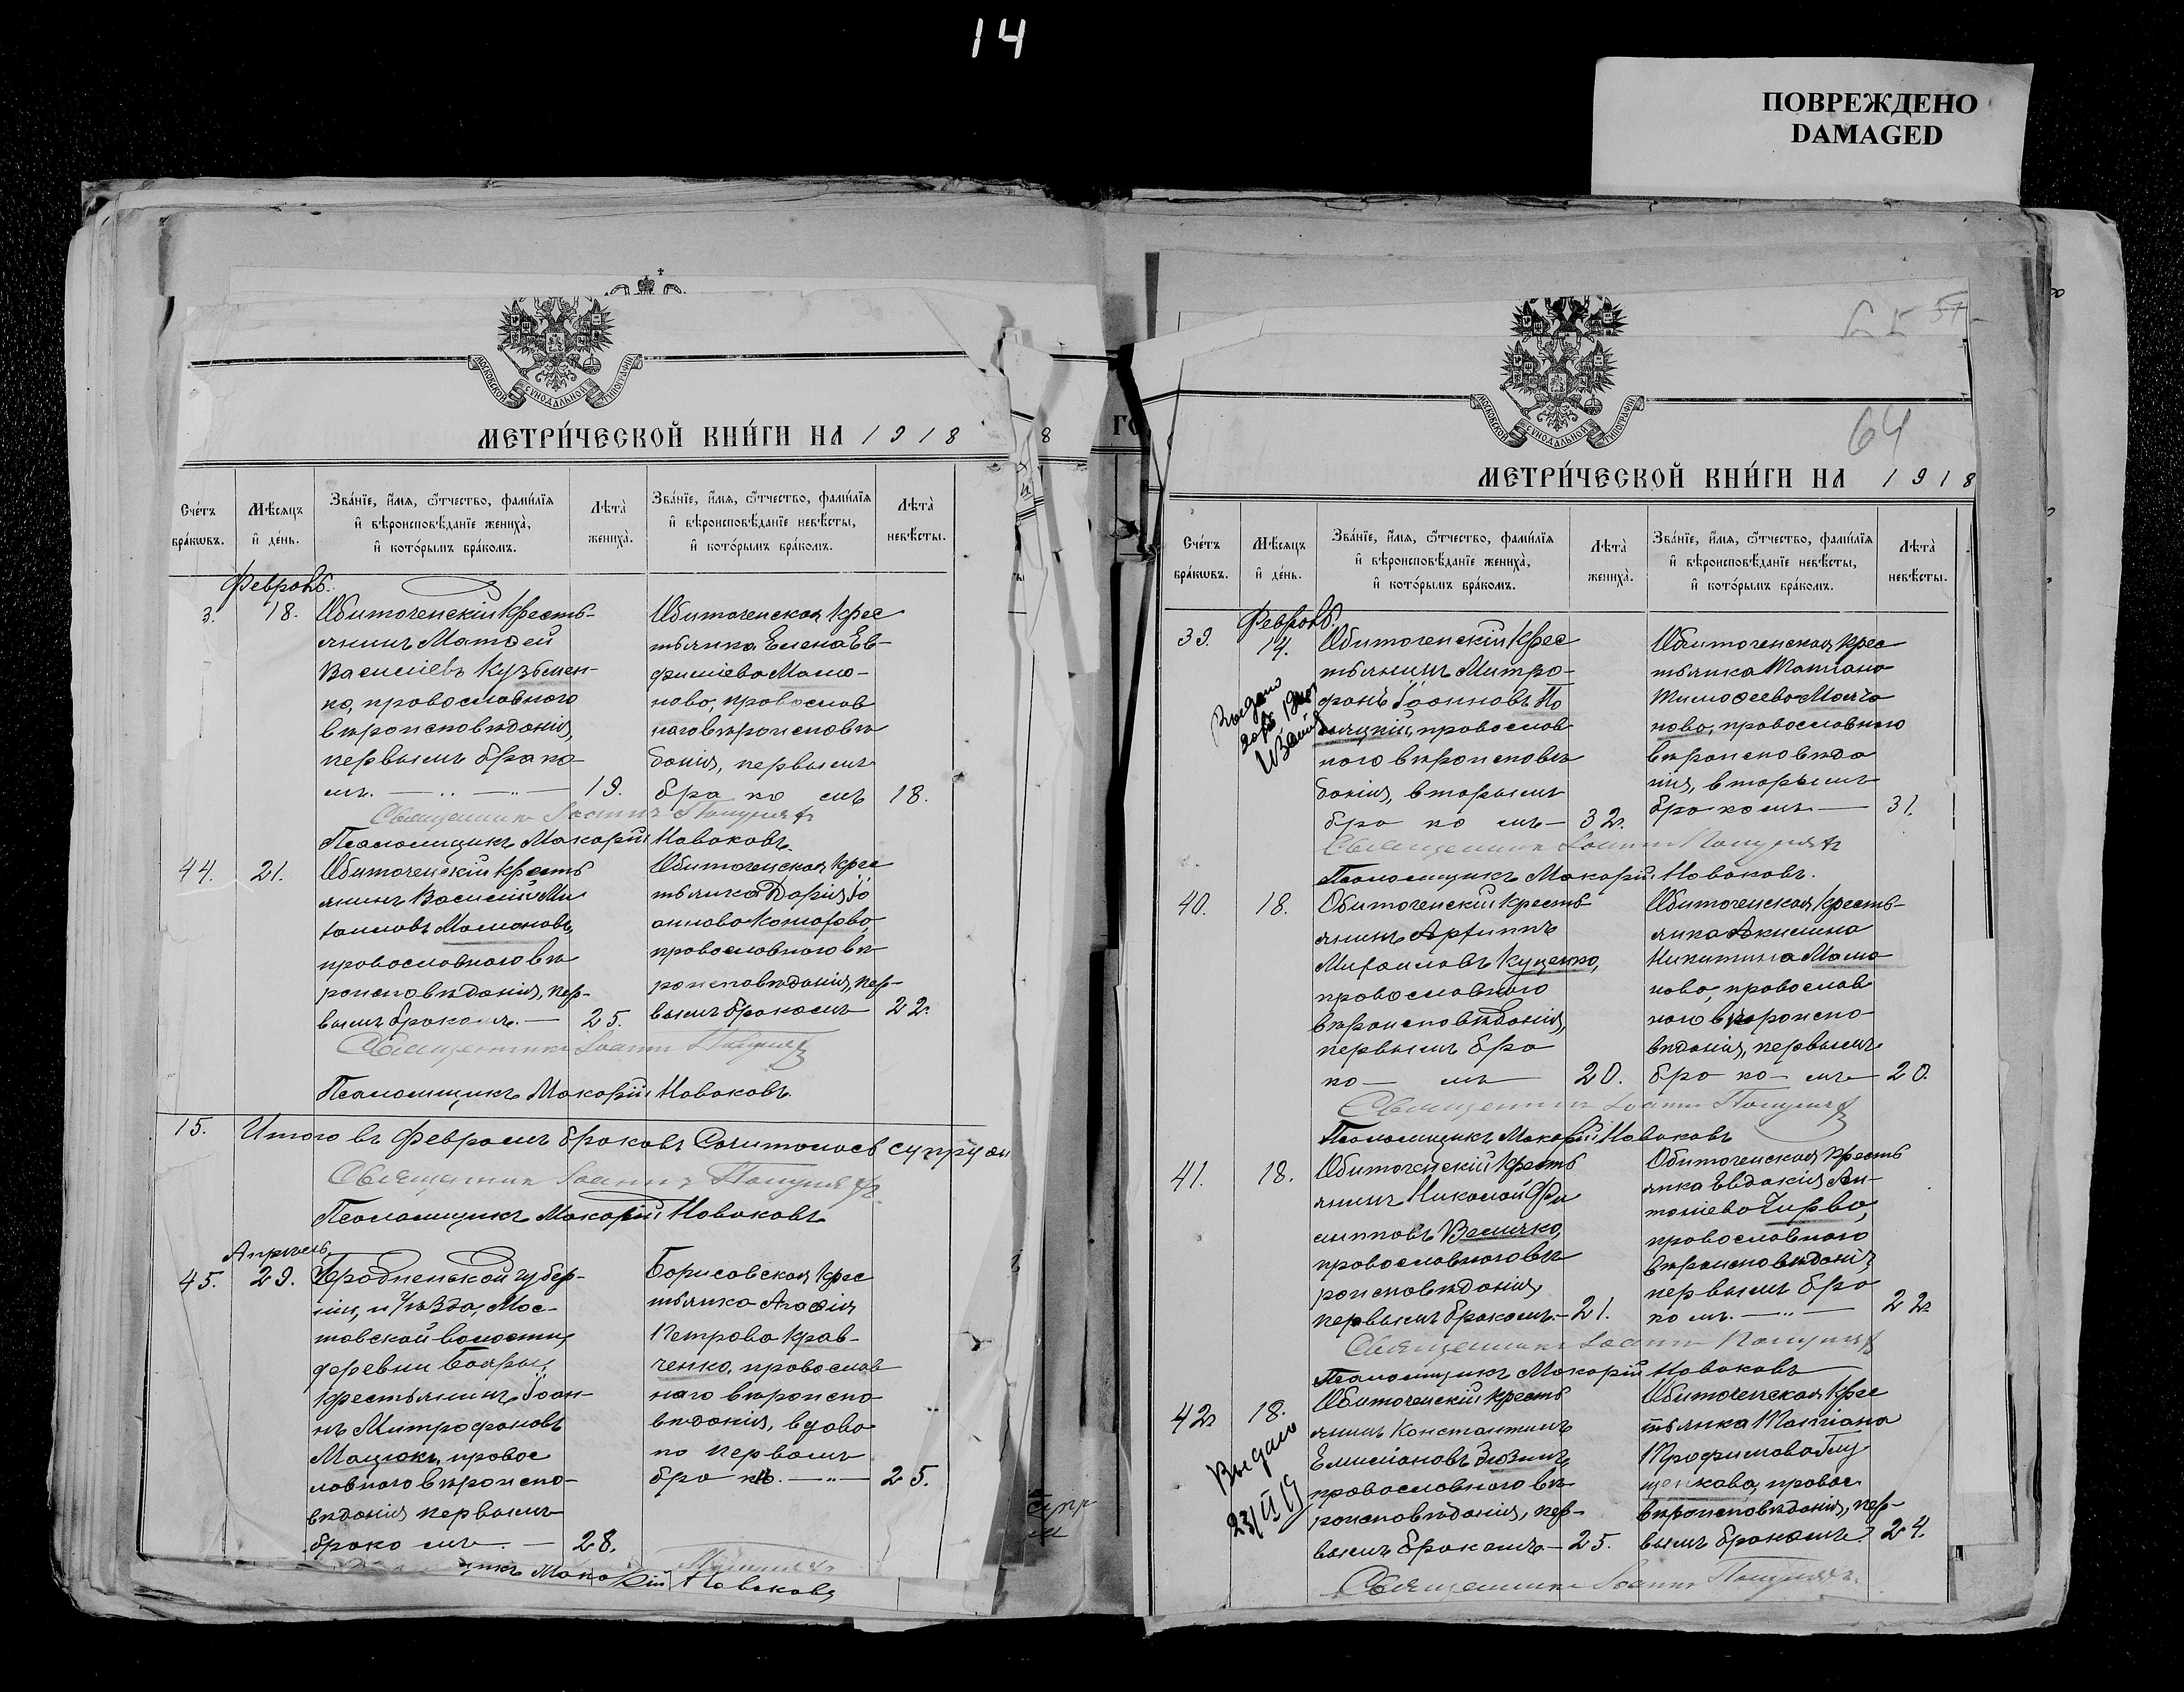 14
ПОВРЕЖДЕНО
DAMAGED
МОСКОВСКОЙ СѴНОДАЛЬНОЙ ТИПОГРАФІИ
МЕТРИ́ЧЕСКОЙ КНИ́ГИ НА 1918
Сче́тъ бра́кѡвъ.
Мѣ́сяцъ и҆ де́нь.
Зва́нїе, и҆́мѧ, ѻ҆́тчество, фами́лїѧ
и҆ вѣроисповѣ́данїе жениха̀,
и҆ кото́рымъ бра́комъ.
Лѣта̀ жениха̀.
Зва́нїе, и҆́мѧ, ѻ҆́тчество, фами́лїѧ
и҆ вѣроисповѣ́данїе невѣ́сты,
и҆ кото́рымъ бра́комъ.
Лѣта̀ невѣ́сты.
Февраль.
3.
18.
Обиточенскій кресть-
янинъ Матѳей
Василіевъ Кузьмен-
ко, православнаго
вѣроисповѣданія,
первымъ брако
мъ.
19.
Обиточенская крес
тьянка Елена Ев-
фиміева Мамо-
нова, православ
наго вѣроисповѣ
данія, первымъ
бра ко мъ
18.
Священникъ Іоаннъ
Псаломщикъ Макарій Новаковъ.
44.
21.
Обиточенскій кресть
янинъ Василій Ми
хаиловъ Мамоновъ,
православнаго вѣ
роисповѣданія, пер-
вымъ бракомъ.
25.
Обиточенская крес
тьянка Дарія Іо
аннова Комарова,
православнаго вѣ
роисповѣданія, пер-
вымъ бракомъ
22.
Священникъ Іоаннъ
Псаломщикъ Макарій Новаковъ.
15.
Итого въ Февралѣ браковъ сочиталось супруж
Священникъ Іоаннъ
Псаломщикъ Макарій Новаковъ
Апрѣль
45.
29.
Гродненской губер-
ніи, и уѣзда, Мос-
товской волости,
деревни Бояры,
крестьянинъ Іоан-
нъ Митрофановъ
Мацюкъ, правос
лавнаго вѣроиспо-
вѣданія первымъ
брако мъ.
28.
Борисовская крес
тьянка Агаѳія
Петрова Крав-
ченко, православ
наго вѣроиспо
вѣданія, вдова
по первомъ
бра кѣ.
25.
щикъ Макарій Новаковъ
64
МОСКОВСКОЙ СѴНОДАЛЬНОЙ ТИПОГРАФІИ
МЕТРИ́ЧЕСКОЙ КНИ́ГИ НА 1918
Сче́тъ бра́кѡвъ.
Мѣ́сяцъ и҆ де́нь.
Зва́нїе, и҆́мѧ, ѻ҆́тчество, фами́лїѧ
и҆ вѣроисповѣ́данїе жениха̀,
и҆ кото́рымъ бра́комъ.
Лѣта̀ жениха̀.
Зва́нїе, и҆́мѧ, ѻ҆́тчество, фами́лїѧ
и҆ вѣроисповѣ́данїе невѣ́сты,
и҆ кото́рымъ бра́комъ.
Лѣта̀ невѣ́сты.
Февраль.
39.
14.
Выдано
Обиточенскій крес
тьянинъ Митро-
фанъ Іоанновъ
православ
наго вѣроисповѣ
данія, вторымъ
бра ко мъ
32.
Обиточенская крес
тьянка Татіана
Тимоѳеева Молча
нова, православнаго
вѣроисповѣда
нія, вторымъ
бра комъ
31.
Священникъ Іоаннъ
Псаломщикъ Макарій Новаковъ.
40.
18.
Обиточенскій кресть
янинъ Архиппъ
Михаиловъ Куценко,
православнаго
вѣроисповѣданія,
первымъ бра
ко- мъ
20.
Обиточенская кресть-
янка Акилина
Никитина Мамо
нова, православ
наго вѣроиспо-
вѣданія, первымъ
бра ко- мъ
20.
Священникъ Іоаннъ
Псаломщикъ Макарій Новаковъ
41.
18.
Обиточенскій кресть
янинъ Николай Фи
липповъ Величко,
православнаго вѣ
роисповѣданія,
первымъ бракомъ.
21.
Обиточенская кресть
янка Евдокія Ан-
тоніева Чирва,
православнаго
вѣроисповѣданія,
первымъ бра
комъ.
22
Священникъ Іоаннъ
Псаломщикъ Макарій Новаковъ
42
18.
Выдано
23/II 19
Обиточенскій кресть
янинъ Константинъ
Емиліановъ Зюзинъ,
православнаго вѣ
роисповѣданія, пер-
вымъ бракомъ
25.
Обиточенская крес
тьянка Татіана
Трофимова Глу
щенкова, правос.
вѣроисповѣданія, пер-
вымъ бракомъ.
24.
Священникъ Іоаннъ